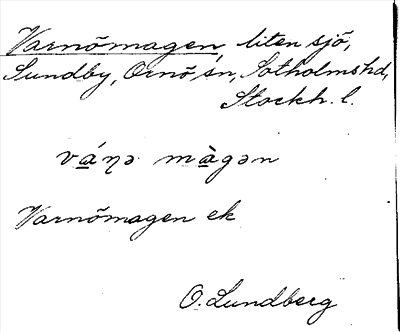 Varnömagen, liten sjö,
Sundby, Ornö sn, Sotholms hd,
Stockh. l.
vάŋə màgən
Varnömagen ek
O. Lundberg